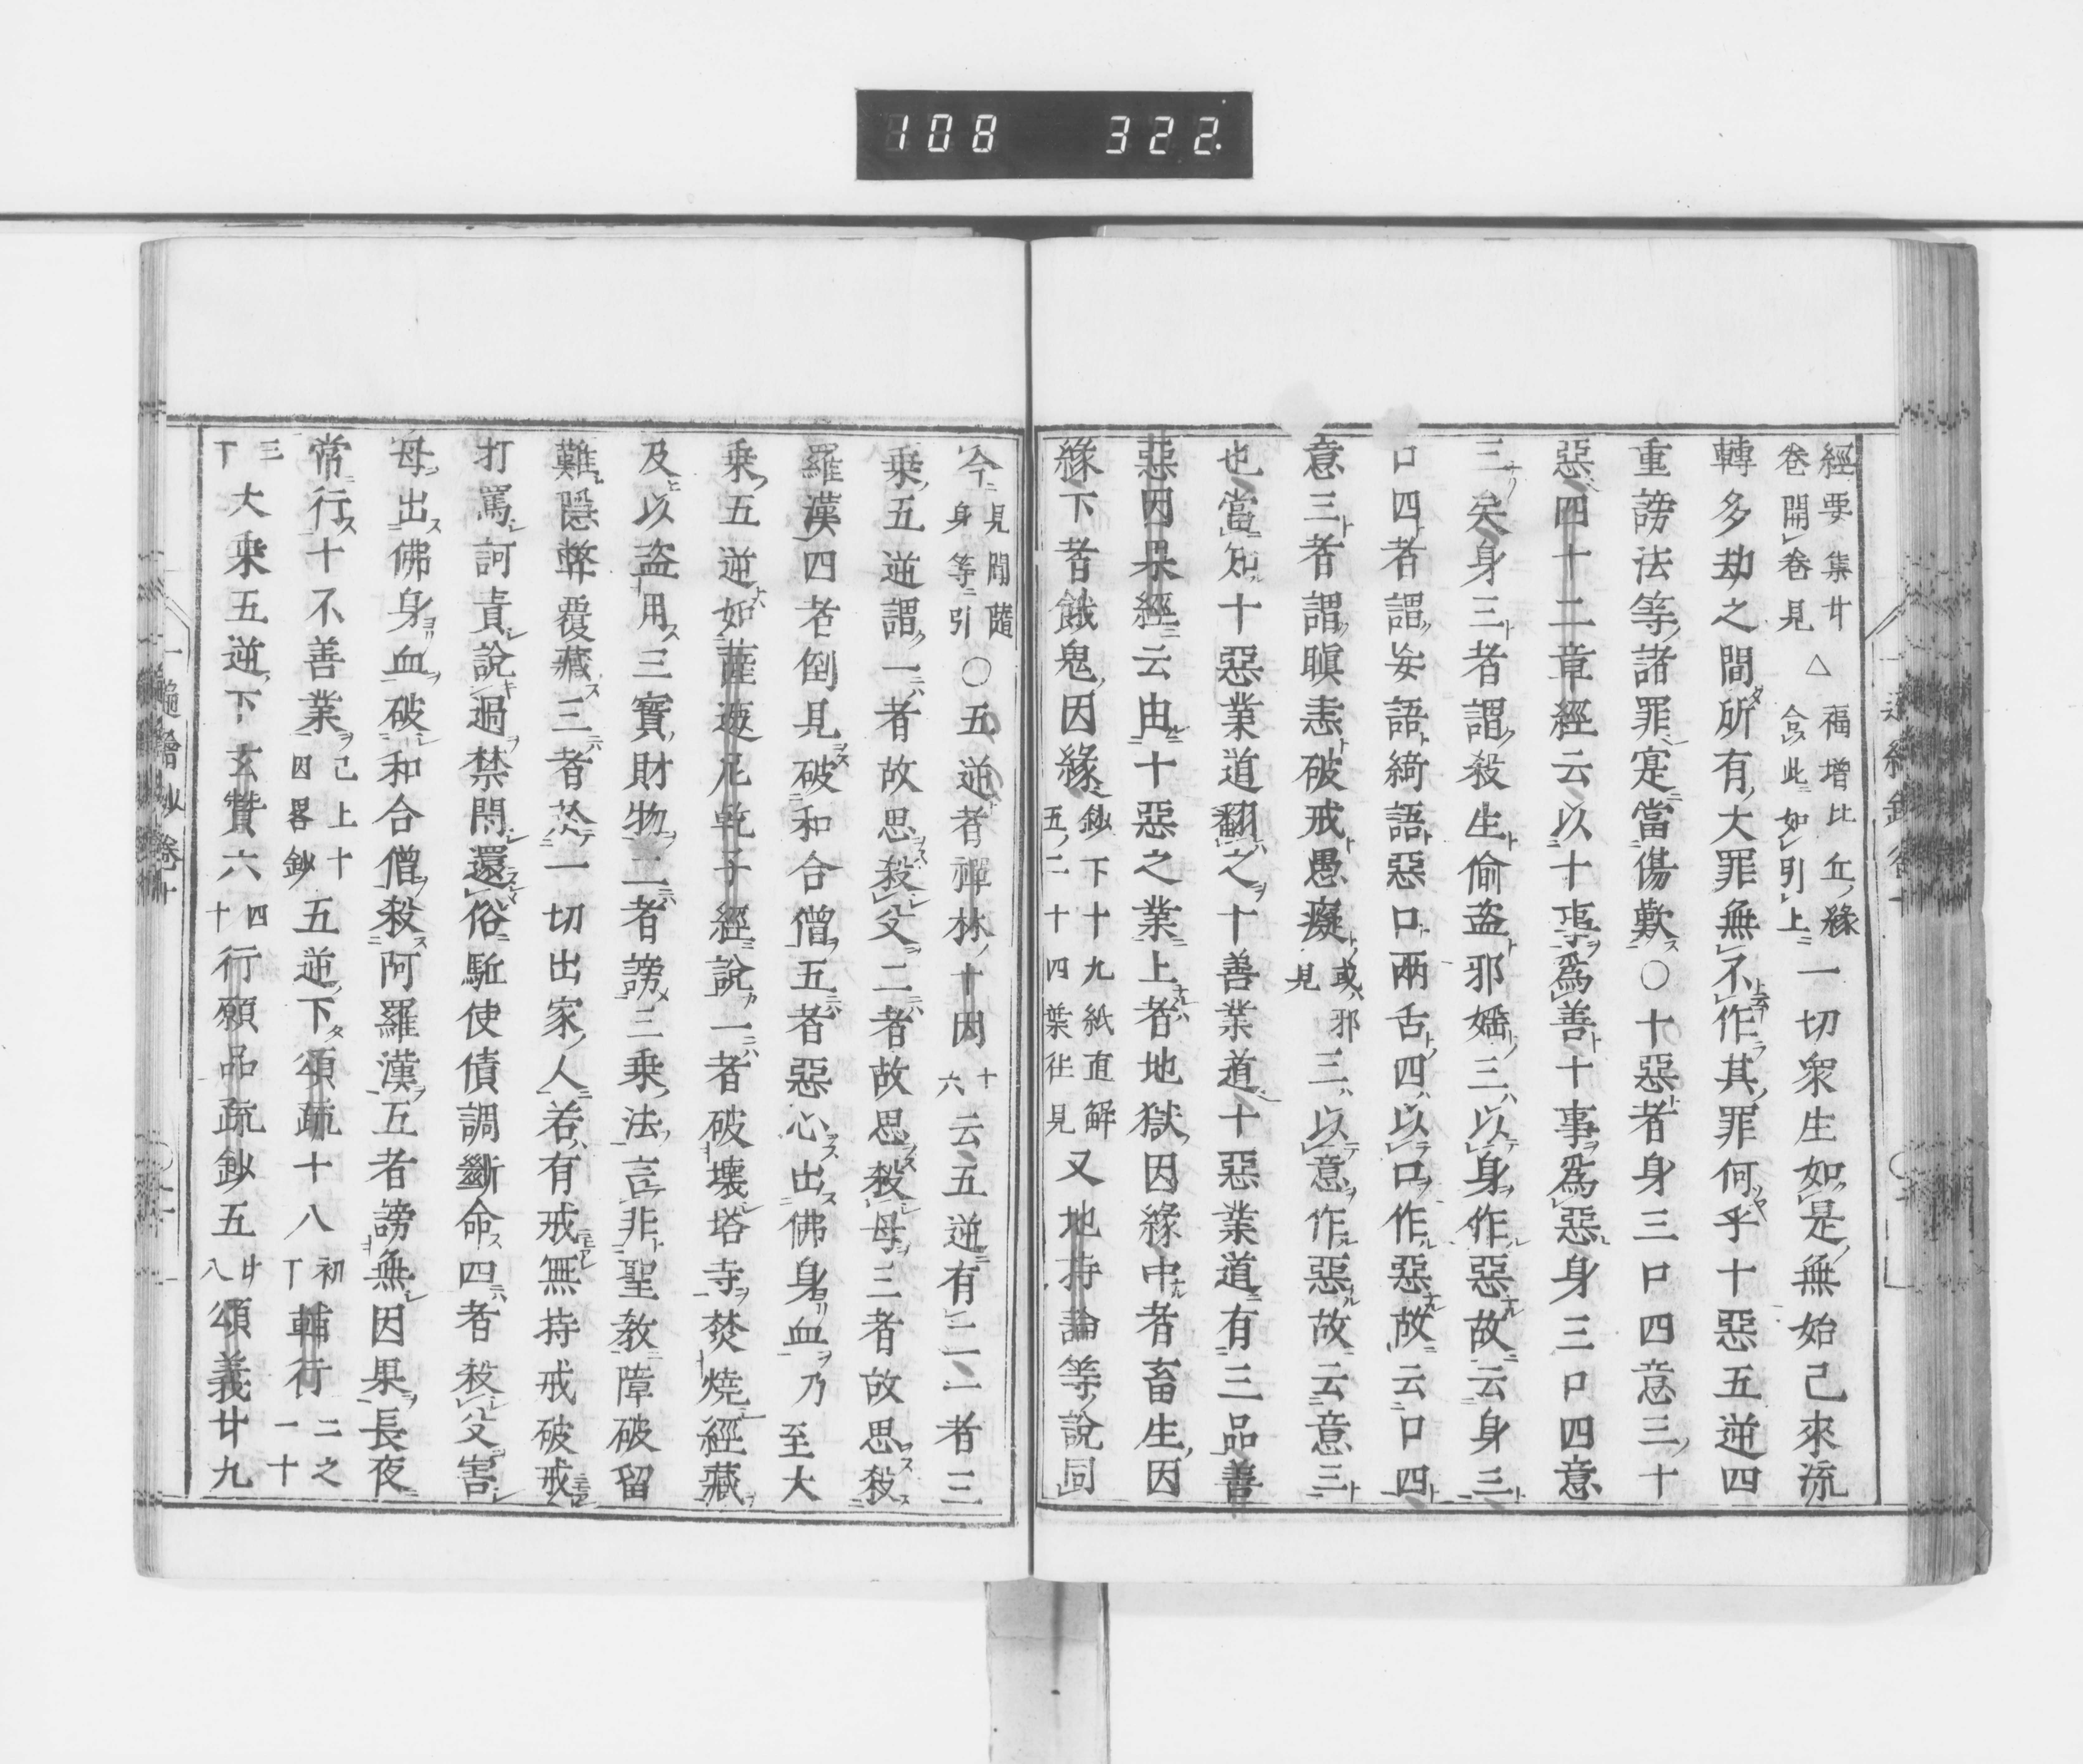 108 322
經要集廿卷開卷見△福增比丘緣合此如引上一切衆生如是無始已來流
轉多劫之間所有大罪無不作其罪何乎十惡五逆四
重謗法等諸罪寔當傷歎○十惡者身三口四意三十
惡四十二章經云以十事爲善十事爲惡身三口四意
三矣身三者謂殺生偷盗邪婬三以身作惡故云身三
口四者謂妄語綺語惡口兩舌四以口作惡故云口四
意三者謂瞋恚破戒愚癡或邪見三以意作惡故云意三
也當知十惡業道翻之十善業道十惡業道有三品善
惡因果經云由十惡之業上者地獄因緣中者畜生因
緣下者餓鬼因緣鈔下十九紙直解五二十四葉往見又地持論等說同
今見聞隨身等引○五逆者禪林十因十六云五逆有二一者三
乘五逆謂一者故思殺父二者故思殺母三者故思殺
羅漢四者倒見破和合僧五者惡心出佛身血乃至大
乘五逆如薩遮尼乾子經說一者破壞塔寺焚燒經藏
及以盗用三寶財物二者謗三乘法言非聖教障破留
難隱弊覆藏三者於一切出家人若有戒無持戒破戒
打罵訶責說過禁閇還俗駈使債調斷命四者殺父害
母出佛身血破和合僧殺阿羅漢五者謗無因果長夜
常行十不善業已上十因畧鈔五逆下頌疏十八初丁輔行二之一十
三丁大乘五逆下玄贊六四十行願品疏鈔五廿八頌義廿九